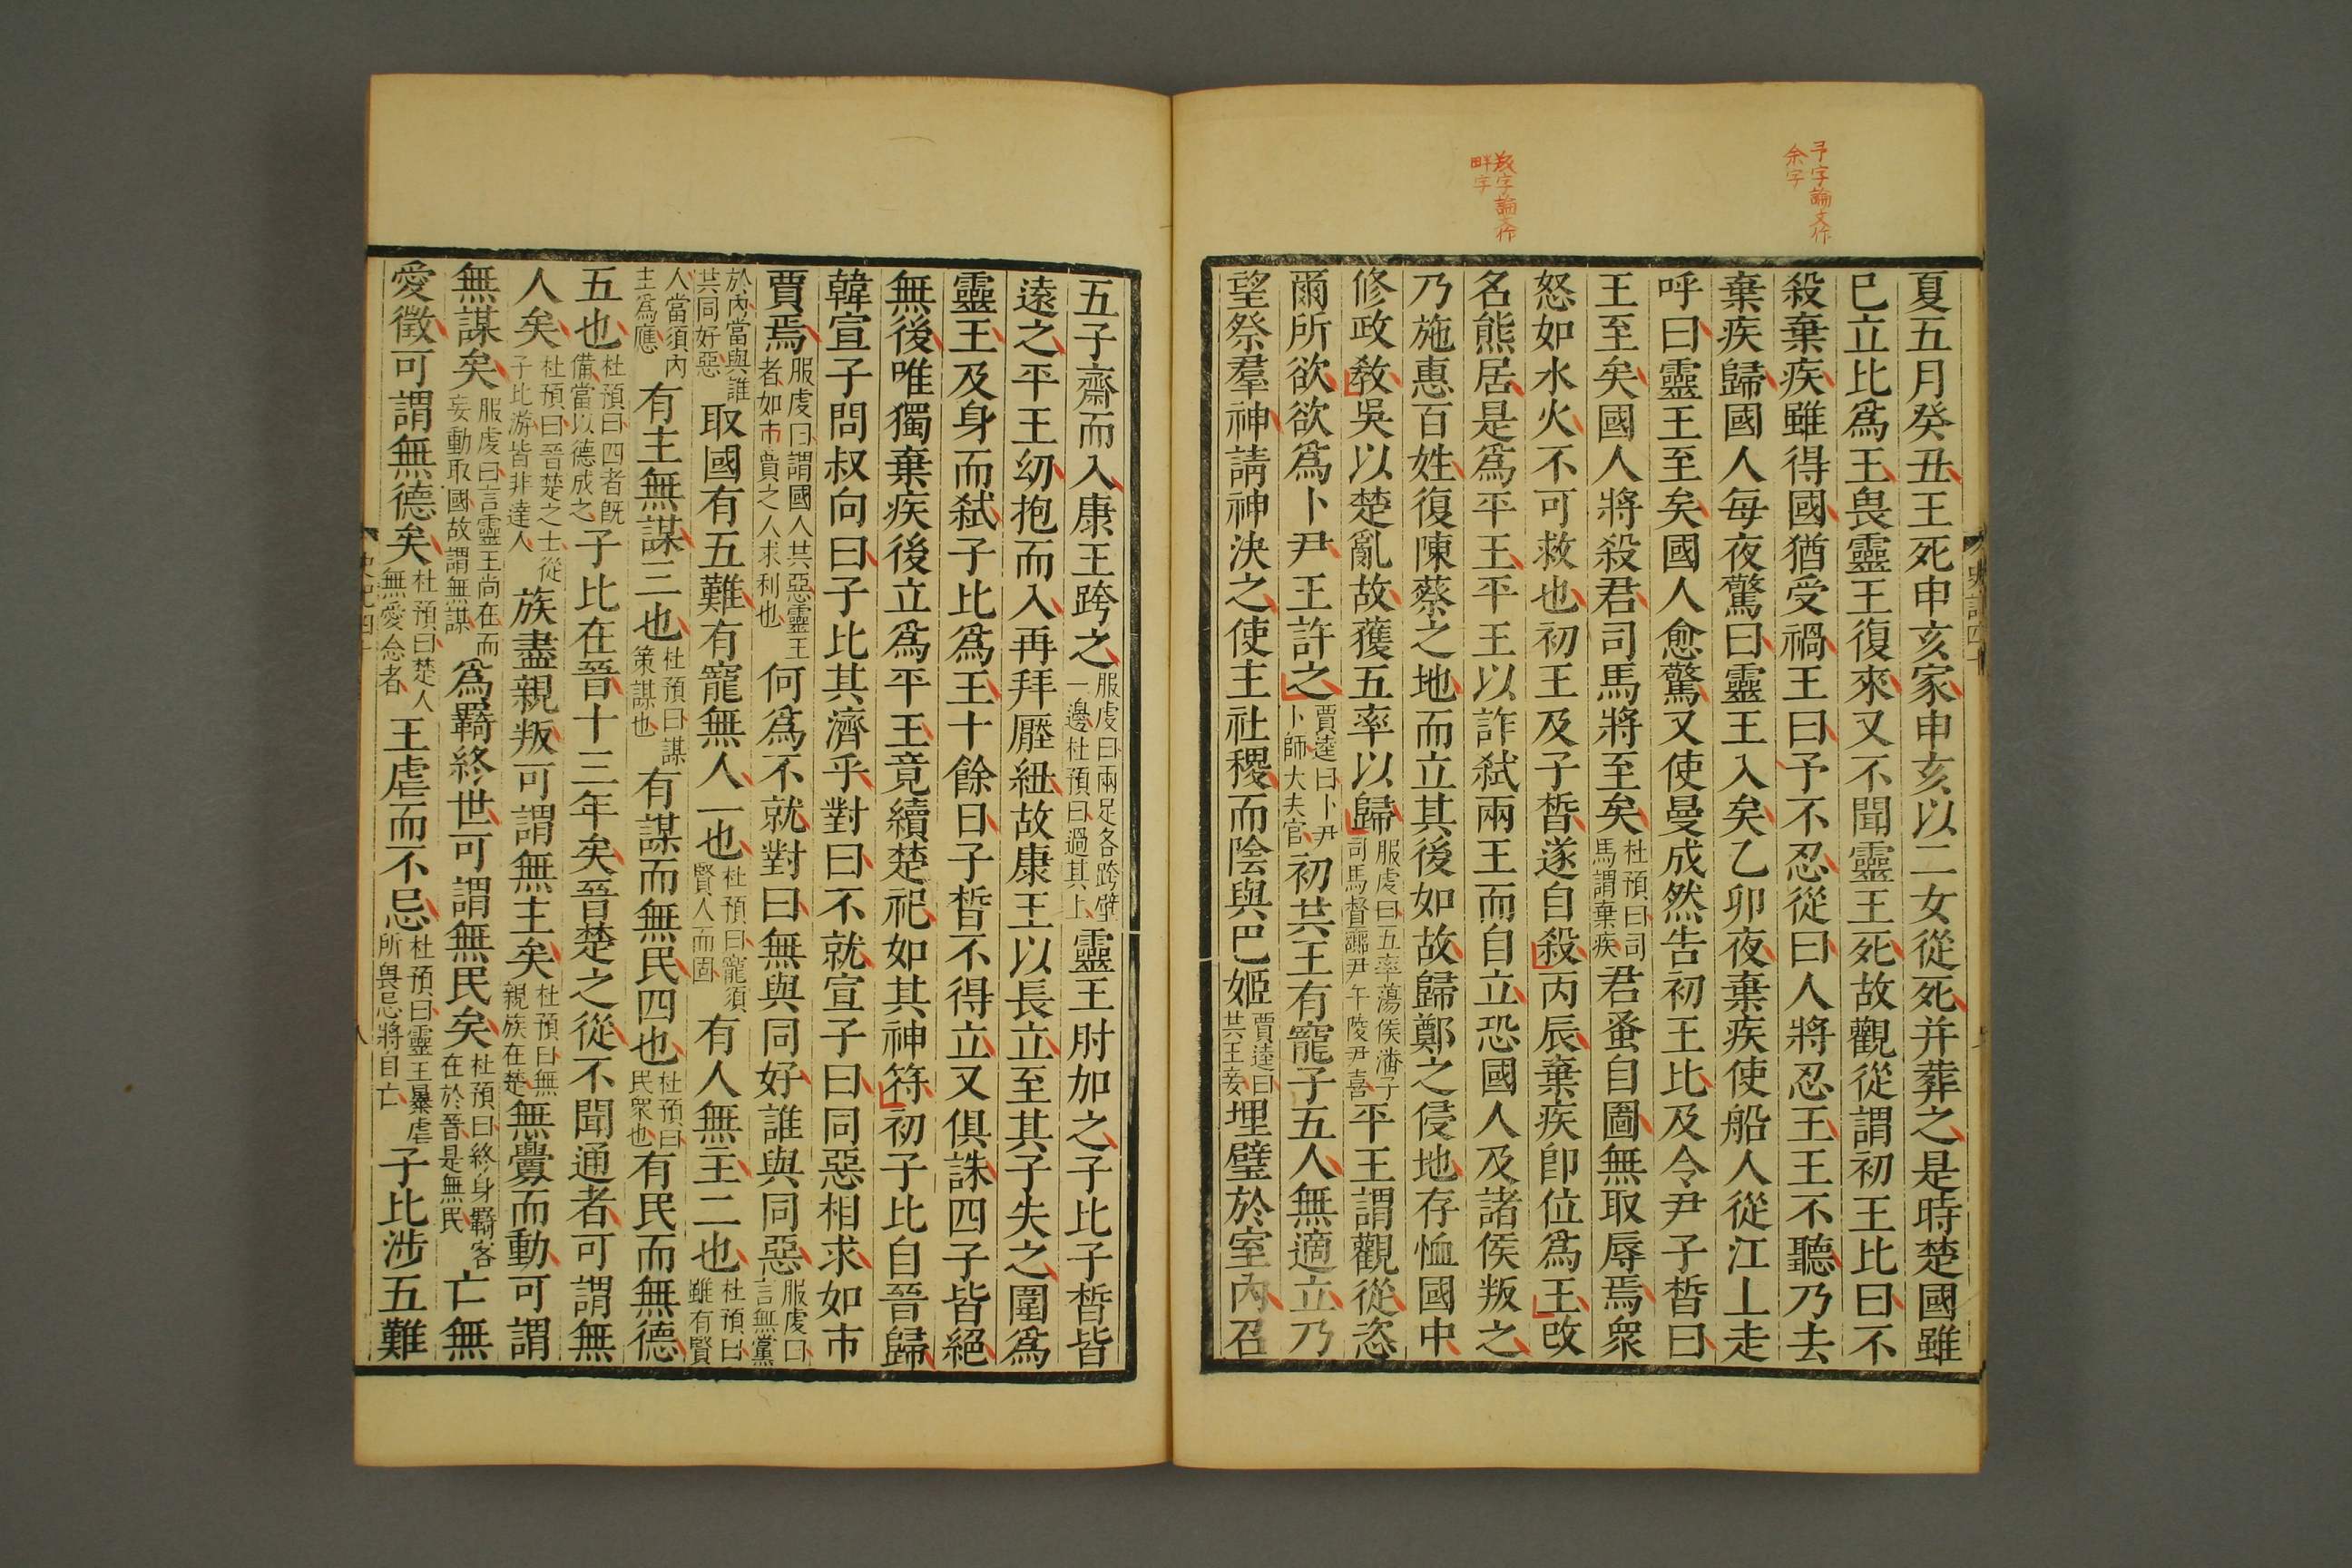 予字論文作
余字
叛字論文作
畔字
夏五月癸丑王死申亥家申亥以二女從死并葬之是時楚國雖
已立比爲王畏靈王復來又不聞靈王死故觀從謂初王比曰不
殺棄疾雖得國猶受禍王曰予不忍從曰人將忍王王不聽乃去
棄疾歸國人每夜驚曰靈王入矣乙卯夜棄疾使船人從江上走
呼曰靈王至矣國人愈驚又使曼成然告初王比及令尹子晳曰
王至矣國人將殺君司馬將至矣杜預曰司馬謂棄疾君蚤自圖無取辱焉衆
怒如水火不可救也初王及子晳遂自殺丙辰棄疾卽位爲王改
名熊居是爲平王平王以詐弑兩王而自立恐國人及諸侯叛之
乃施惠百姓復陳蔡之地而立其後如故歸鄭之侵地存恤國中
修政教吳以楚亂故獲五率以歸服虔曰五率蕩侯潘子司馬督嚻尹午陵尹喜平王謂觀從恣
爾所欲欲爲卜尹王許之賈逵曰卜尹卜師大夫官初共王有寵子五人無適立乃
望祭羣神請神決之使主社稷而陰與巴姬賈逵曰共王妾埋璧於室內召
五子齋而入康王跨之服虔曰兩足各跨璧一邊杜預曰過其上靈王肘加之子比子晳皆
遠之平王幼抱而入再拜壓紐故康王以長立至其子失之圍爲
靈王及身而弑子比爲王十餘日子晳不得立又俱誅四子皆絕
無後唯獨棄疾後立爲平王竟續楚祀如其神符初子比自晉歸
韓宣子問叔向曰子比其濟乎對曰不就宣子曰同惡相求如市
賈焉服虔曰謂國人共惡靈王者如市賈之人求利也何爲不就對曰無與同好誰與同惡服虔曰言無黨
於內當與誰共同好惡取國有五難有寵無人一也杜預曰寵須賢人而固有人無主二也杜預曰雖有賢
人當須內主爲應有主無謀三也杜預曰謀策謀也有謀而無民四也杜預曰民衆也有民而無德
五也杜預曰四者旣備當以德成之子比在晉十三年矣晉楚之從不聞通者可謂無
人矣杜預曰晉楚之士從子比游皆非達人族盡親叛可謂無主矣杜預曰無親族在楚無釁而動可謂
無謀矣服虔曰言靈王尚在而妄動取國故謂無謀爲羈終世可謂無民矣杜預曰終身羈客在於晉是無民亡無
愛徵可謂無德矣杜預曰楚人無愛念者王虐而不忌杜預曰靈王暴虐所畏忌將自亡子比涉五難